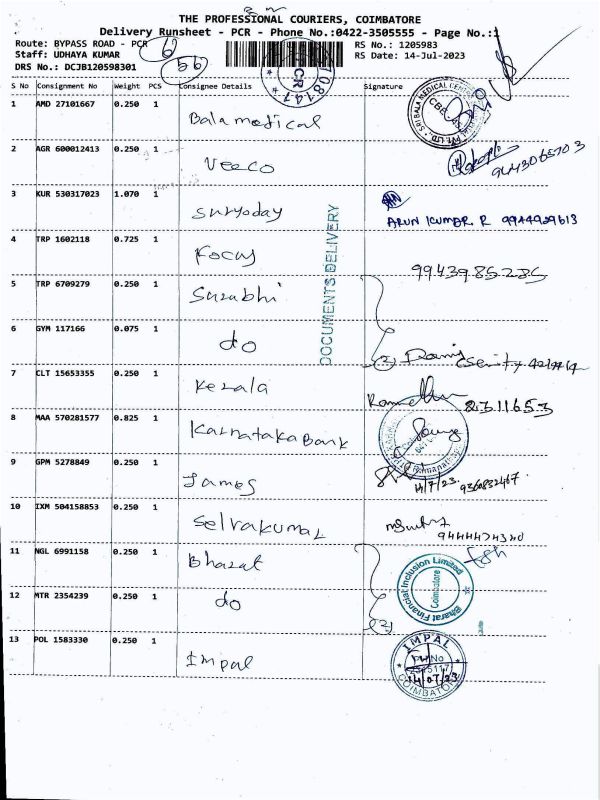 THE PROFESSIONAL COURIERS, COIMBATORE
Delivery Runsheet - PCR - Phone No.:0422-3505555 - Page No.:1
Route: BYPASS ROAD - PCR
RS No.: 1205983
Staff: UDHAYA KUMAR
RS Date: 14-Jul-2023
DRS No.: DCJB120598301
56
S No Consignment No Weight PCS Consignee Details Signature
1 AMD 27101667 0.250 1 Bala medical
2 AGR 600012413 0.250 1 Veeco
3 KUR 530317023 1.070 1 Suryoday
ARUN KUMAR. R 9944909613
4 TRP 1602118 0.725 1 Focus
9943985285
DOCUMENTS DELIVERY
5 TRP 6709279 0.250 1 Surabhi
6 GYM 117166 0.075 1 do
7 CLT 15653355 0.250 1 Kerala
2311653
8 MAA 570281577 0.825 1 Karnataka Bank
9 GPM 5278849 0.250 1 James
14/7/23. 9360832467.
10 IXM 504158853 0.250 1 Selvakumar
9444474340
11 NGL 6991158 0.250 1 Bharat
12 MTR 2354239 0.250 1 do
Bharat Financial Inclusion Limited
Coimbatore
13 POL 1583330 0.250 1 Impal
IMPAL
14/07/23
COIMBATORE